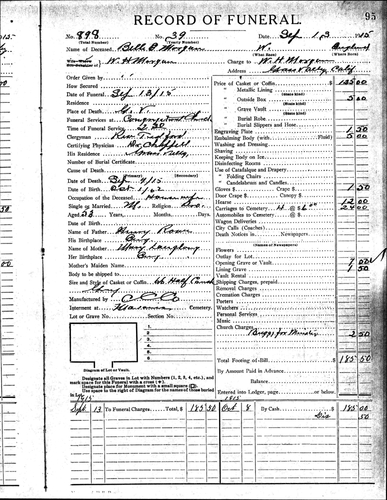 95
RECORD OF FUNERAL.
No. 898 No. 39 Sep 13 1915
(Total Number) (Yearly Number)
Name of Deceased Beth E Morgan W.
W H Morgan Charge to W. H. Morgan
Address Grass Valley, Calif
Order Given by
How Secured
Date of Funeral Sep 13/15
Residence
Place of Death
Funeral Services at Congregational Church
Time of Funeral Service 2.30
Clergyman Rev.
Certifying Physician Dr Chappell
His Residence Grass Valley
Number of Burial Certificate
Cause of Death
(Primary) (Secondary)
Date of Death Sep 9/15
Date of Birth Oct 1/62
Occupation of Deceased Housewife
Single or Married M. Religion
Aged 53 Years, Months, Days
Name of Father Henry Rowe
His Birthplace Eng
Name of Mother Mary
Her Birthplace Eng
Mother's Maiden Name
Body to be shipped to
Size and Style of Casket or Coffin 6/6 Half Couch
Grey
Manufactured by
Interment at Cemetery
Lot or Grave No. Section No.
1
2
3
4
5
6
Diagram of Lot or Vault.
Designate all Graves in Lot with Numbers (1, 2, 3, 4, etc.), and mark space for this Funeral with a cross (+).
Designate place for Monument with a small square
Use space to right of Diagram for the names of those buried in Lot.
Price of Casket or Coffin 135 00
Metallic Lining
(State Kind)
Outside Box 5 00
(State Kind)
Grave Vault
(State Kind)
Burial Robe
(State Kind)
Burial Slippers and Hose
Engraving Plate 1 50
Embalming Body (with Fluid) 5 00
Washing and Dressing
Shaving
Keeping Body on Ice
Disinfecting Rooms
Use of Catafalque and Drapery
" Folding Chairs
Candelabrum and Candles
Gloves 1 50
Door Crape
Hearse 12 00
Carriages to Cemetery 4 @ $6 00 24 00
Automobiles to Cemetery @ $
Wagon Deliveries
City Calls (Coaches)
Death Notices in Newspapers
(Names of Newspapers)
Flowers
Outlay for Lot
Opening Grave or Vault 7 00
Lining Grave 1 50
Vault Rental
Shipping Charges, prepaid
Removal Charges
Cremation Charges
Porters
Watchers
Personal Services
Music
Church Charges
Buggy for Minister 2 50
Total Footing of Bill 185 50
By Amount Paid in Advance
Balance
Entered into Ledger, page or below.
1915 1915
Sept. 13 To Funeral Charges, Total, $ 185 50 Oct 8 By Cash $ 185 00
Dis 50